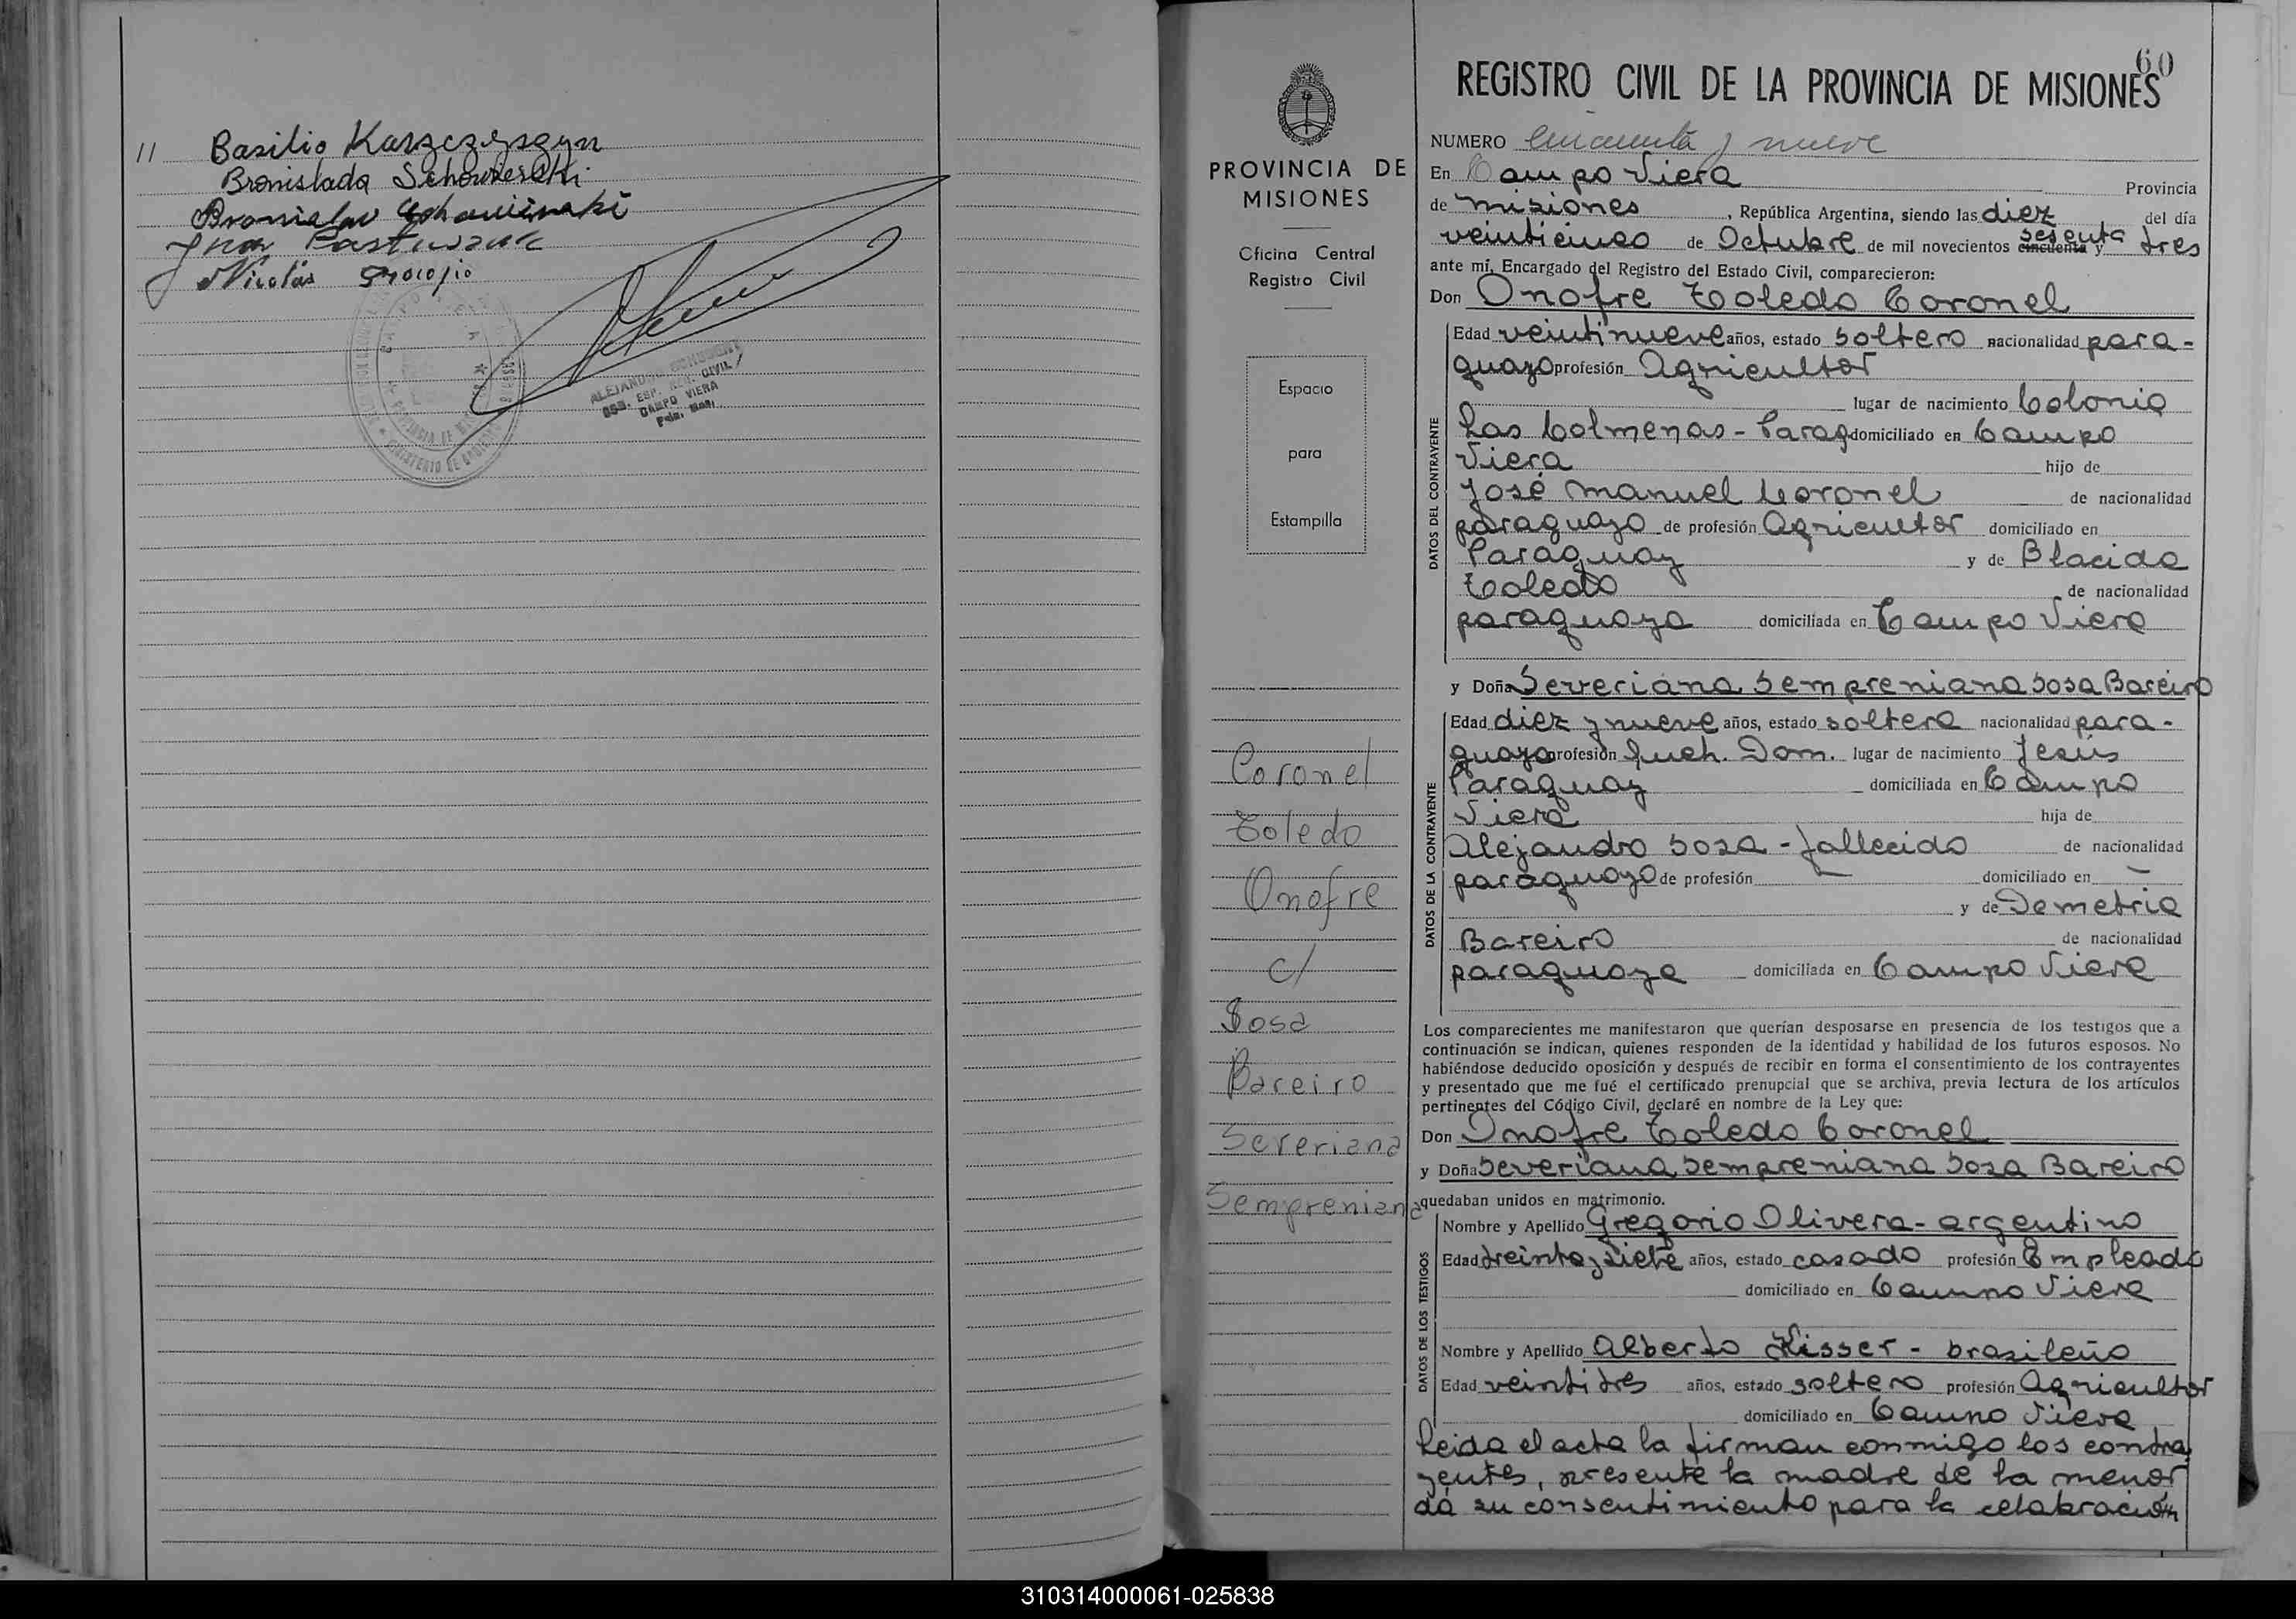 11 Basilio Karzczyszyn
Bronislada Schowierski
Bronislav
Juan Pastuszuk
Nicolás
ALEJANDRO SCHUBERT
ESP. REG. CIVIL
CAMPO VIERA
Pcia. Mnes.
60
REGISTRO CIVIL DE LA PROVINCIA DE MISIONES
PROVINCIA DE
MISIONES
Oficina Central
Registro Civil
Espacio
para
Estampilla
Coronel
Toledo
Onofre
c/
Sosa
Bareiro
Severiana
Sempreniana
NUMERO cincuenta y nueve
En Campo Viera Provincia
de Misiones, República Argentina, siendo las diez del día
veinticinco de Octubre de mil novecientos cincuenta sesenta y tres
ante mí, Encargado del Registro del Estado Civil, comparecieron:
Don Onofre Toledo Coronel
DATOS DEL CONTRAYENTE
Edad veintinueve años, estado soltero nacionalidad para-
guayo profesión Agricultor
lugar de nacimiento Colonia
Las Colmenas - Parag domiciliado en Campo
Viera hijo de
José Manuel Coronel de nacionalidad
paraguayo de profesión Agricultor domiciliado en
Paraguay y de Blacida
Toledo de nacionalidad
paraguaya domiciliada en Campo Viera
y Doña Severiana Sempreniana Sosa Bareiro
DATOS DE LA CONTRAYENTE
Edad diez y nueve años, estado soltera nacionalidad para-
guaya profesión Queh. Dom. lugar de nacimiento Jesús
Paraguay domiciliada en Campo
Viera hija de
Alejandro Sosa - fallecido de nacionalidad
paraguayo de profesión — domiciliado en —
y de Demetria
Bareiro de nacionalidad
paraguaya domiciliada en Campo Viera
Los comparecientes me manifestaron que querían desposarse en presencia de los testigos que a
continuación se indican, quienes responden de la identidad y habilidad de los futuros esposos. No
habiéndose deducido oposición y después de recibir en forma el consentimiento de los contrayentes
y presentado que me fué el certificado prenupcial que se archiva, previa lectura de los artículos
pertinentes del Código Civil, declaré en nombre de la Ley que:
Don Onofre Toledo Coronel
y Doña Severiana Sempreniana Sosa Bareiro
quedaban unidos en matrimonio.
DATOS DE LOS TESTIGOS
Nombre y Apellido Gregorio Olivera - argentino
Edad treinta y siete años, estado casado profesión Empleado
domiciliado en Campo Viera
Nombre y Apellido Alberto Kisser - brasileño
Edad veintitres años, estado soltero profesión Agricultor
domiciliado en Campo Viera
Leida el acta la firman conmigo los contra
yentes, presente la madre de la menor
dá su consentimiento para la celabración
310314000061-025838